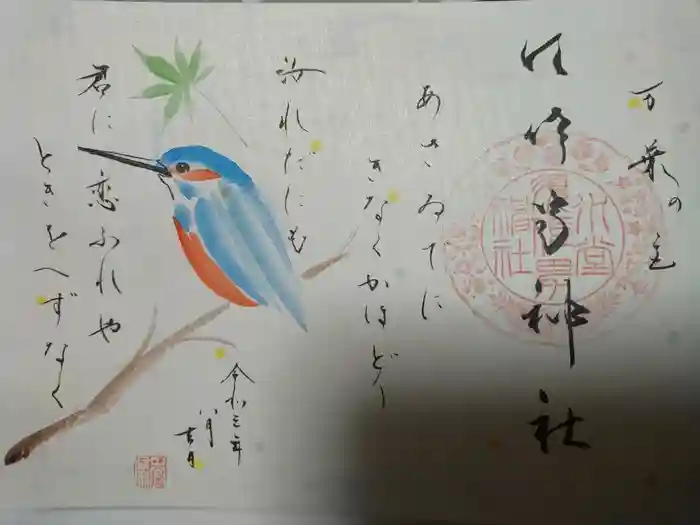 万葉の
神社
あさゐでに
きなくかほどり
汝れだにも
君に恋ふれや
ときをへずなく
令和三年
八月
吉日